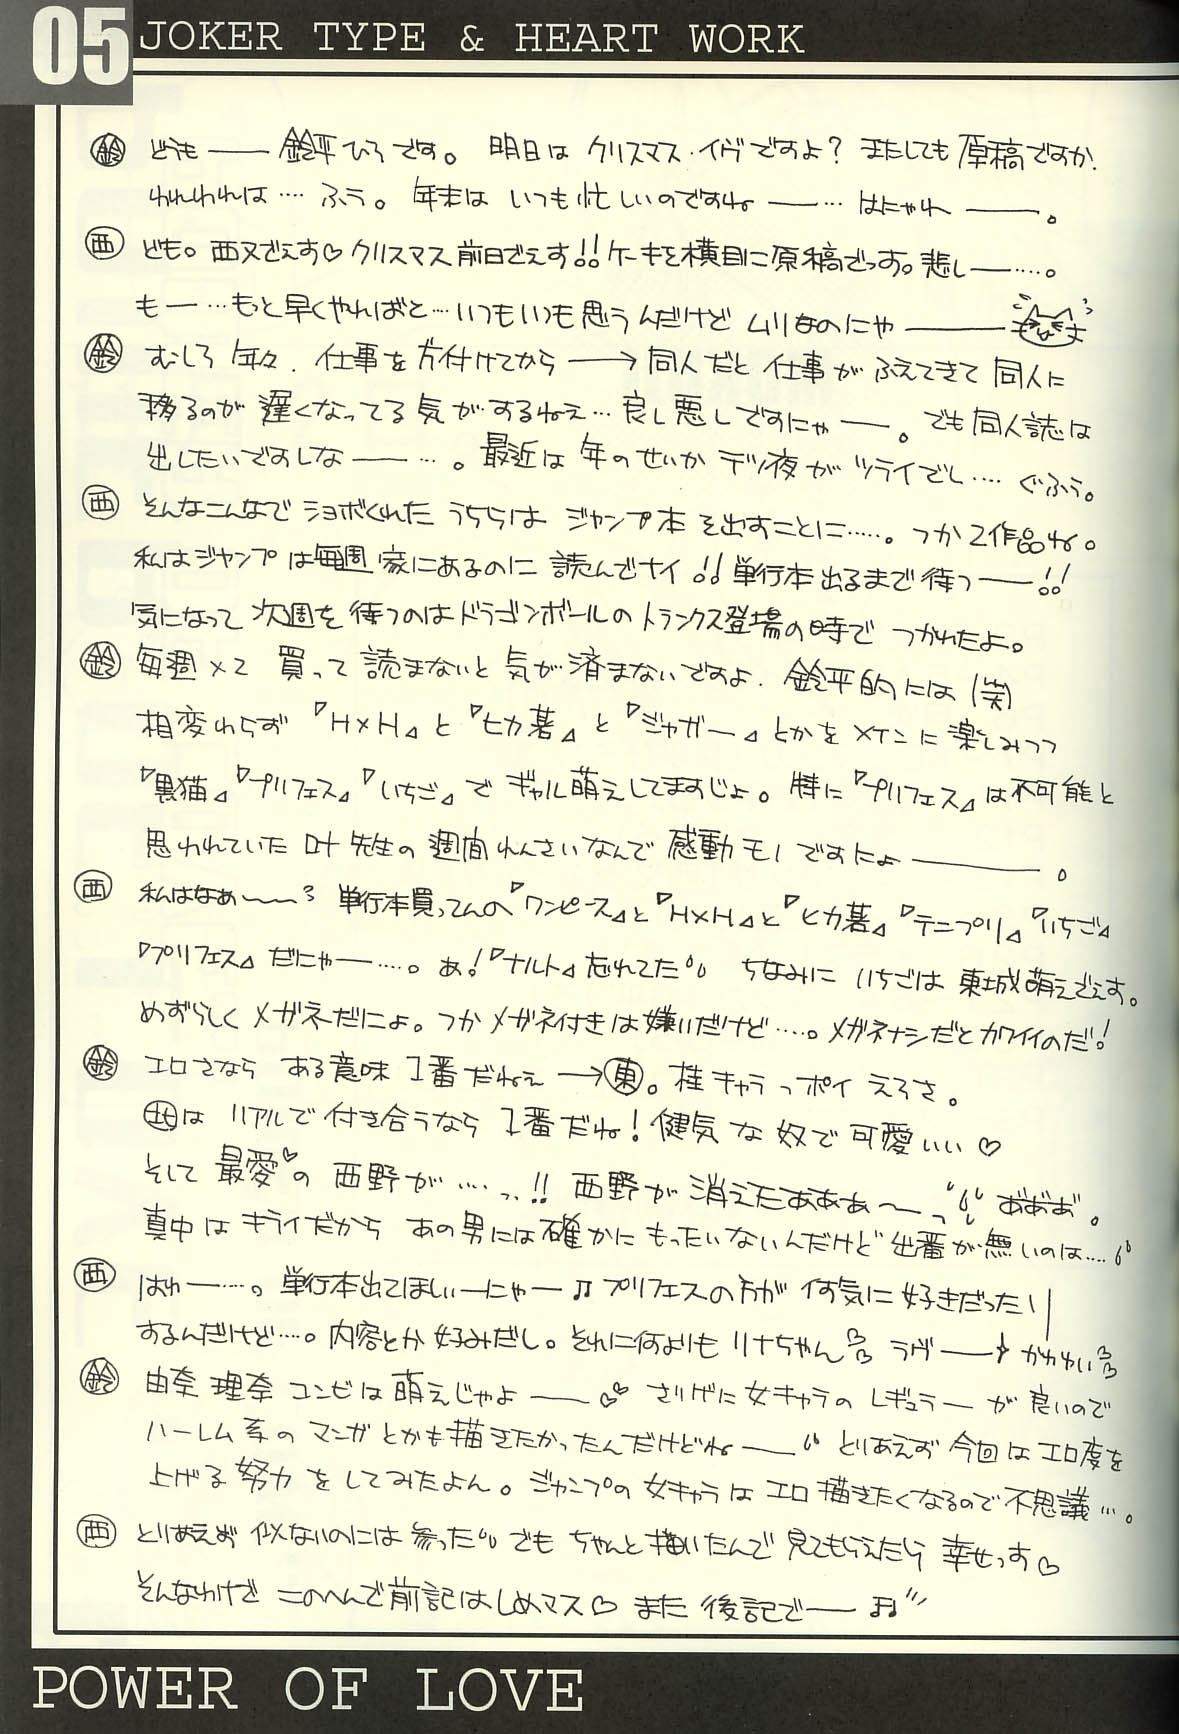 05
JOKER TYPE & HEART WORK
鈴 どうも──鈴平ひろです。 明日は クリスマス・イヴですよ? またしても原稿ですか.
われわれは…. ふう。 年末は いつも忙しいのですね──… はにゃれ──。
西 ども。西又でぇす♡クリスマス前日でぇす!!ケーキを横目に原稿でっす。悲し──….。
もー…もっと早くやればと…いつもいつも思うんだけど ムリなのにゃ──
鈴 むしろ 年々. 仕事を方付けてから──→同人だと 仕事がふえてきて 同人に
移るのが 遅くなってる 気がするねえ… 良し悪しですにゃ──。でも同人誌は
出したいですしな──….。最近は 年のせいか テツ夜が ツライでし…. ぐふぅ。
西 そんなこんなで ショボくれた うちらは ジャンプ本 を出すことに…..。つか2作品ね。
私はジャンプは毎週 家にあるのに 読んでナイ!!単行本出るまで待つ──!!
気になって 次週を 待つのはドラゴンボールのトランクス登場の時で つかれたよ。
鈴 毎週×2 買って 読まないと 気が済まないですよ. 鈴平的には(笑)
相変わらず『H×H』と『ヒカ碁』と『ジャガー』とかをメインに楽しみつつ
『黒猫』『プリフェス』『いちご』で ギャル萌えしてますじょ。特に『プリフェス』は不可能と
思われていた 叶先生の 週間れんさいなんで 感動モノですにょ──。
西 私はなぁ～～? 単行本買ってんの『ワンピース』と『H×H』と『ヒカ碁』『テニプリ』『いちご』
『プリフェス』だにゃー….。あ!『ナルト』忘れてた ちなみに いちごは 東城萌えでぇす。
めずらしくメガネだにょ。つかメガネ付きは嫌いだけど….。メガネナシだとカワイイのだ!
鈴 エロさなら ある意味 1番だねぇ→東。桂キャラっポイ えろさ。
北は リアルで付き合うなら 1番だね!健気な奴で可愛いい♡
そして 最愛♡の 西野が….っ!! 西野が消えたあああ～っ おおお。
真中は キライだから あの男には確かに もったいないんだけど 出番が無いのは….
西 はゎー….。単行本出てほしいーにゃー♫プリフェスの方が 何気に好きだったり
するんだけど….。内容とか好みだし。それに何よりも リナちゃん ラヴ── かわゆい
鈴 由奈 理奈 コンビは萌えじゃよ── さりげに女キャラの レギュラーが 良いので
ハーレム系の マンガとかも描きたかったんだけどね── とりあえず 今回は エロ度を
上げる努力 をしてみたよん。ジャンプの 女キャラは エロ描きたくなるので不思議…。
西 とりあえず 似ないのには 参った でも ちゃんと描いたんで 見てもらえたら 幸せっす♡
そんなわけで このへんで前記はしめマス♡ また 後記でー♫
POWER OF LOVE